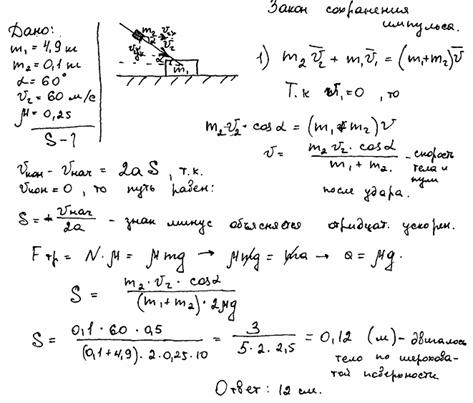 Закон сохранения
импульса.
Дано:
m₁ = 4,9 кг
m₂ = 0,1 кг
α = 60°
v₂ = 60 м/с
μ = 0,25
S - ?
m₂ v₂
α
m₁
1) m₂v̅₂ + m₁v̅₁ = (m₁+m₂)v̅
Т.к v₁=0, то
m₂·v₂·cosα = (m₁+m₂)v
v = m₂v₂·cosα / m₁+m₂ - скорость
тела и
пули
после удара.
vкон - vнач = 2aS, т.к.
vкон = 0, то путь равен:
S = + vнач / 2a - знак минус объясняется отрицат. ускорен.
Fтр = N·μ = μmg → μmg = ma → a = μg.
S = m₂·v₂·cosα / (m₁+m₂)·2μg
S = 0,1·60·0,5 / (0,1+4,9)·2·0,25·10 = 3 / 5·2·2,5 = 0,12 (м) - двигалось
тело по шерохова-
той поверхности
Ответ: 12 см.